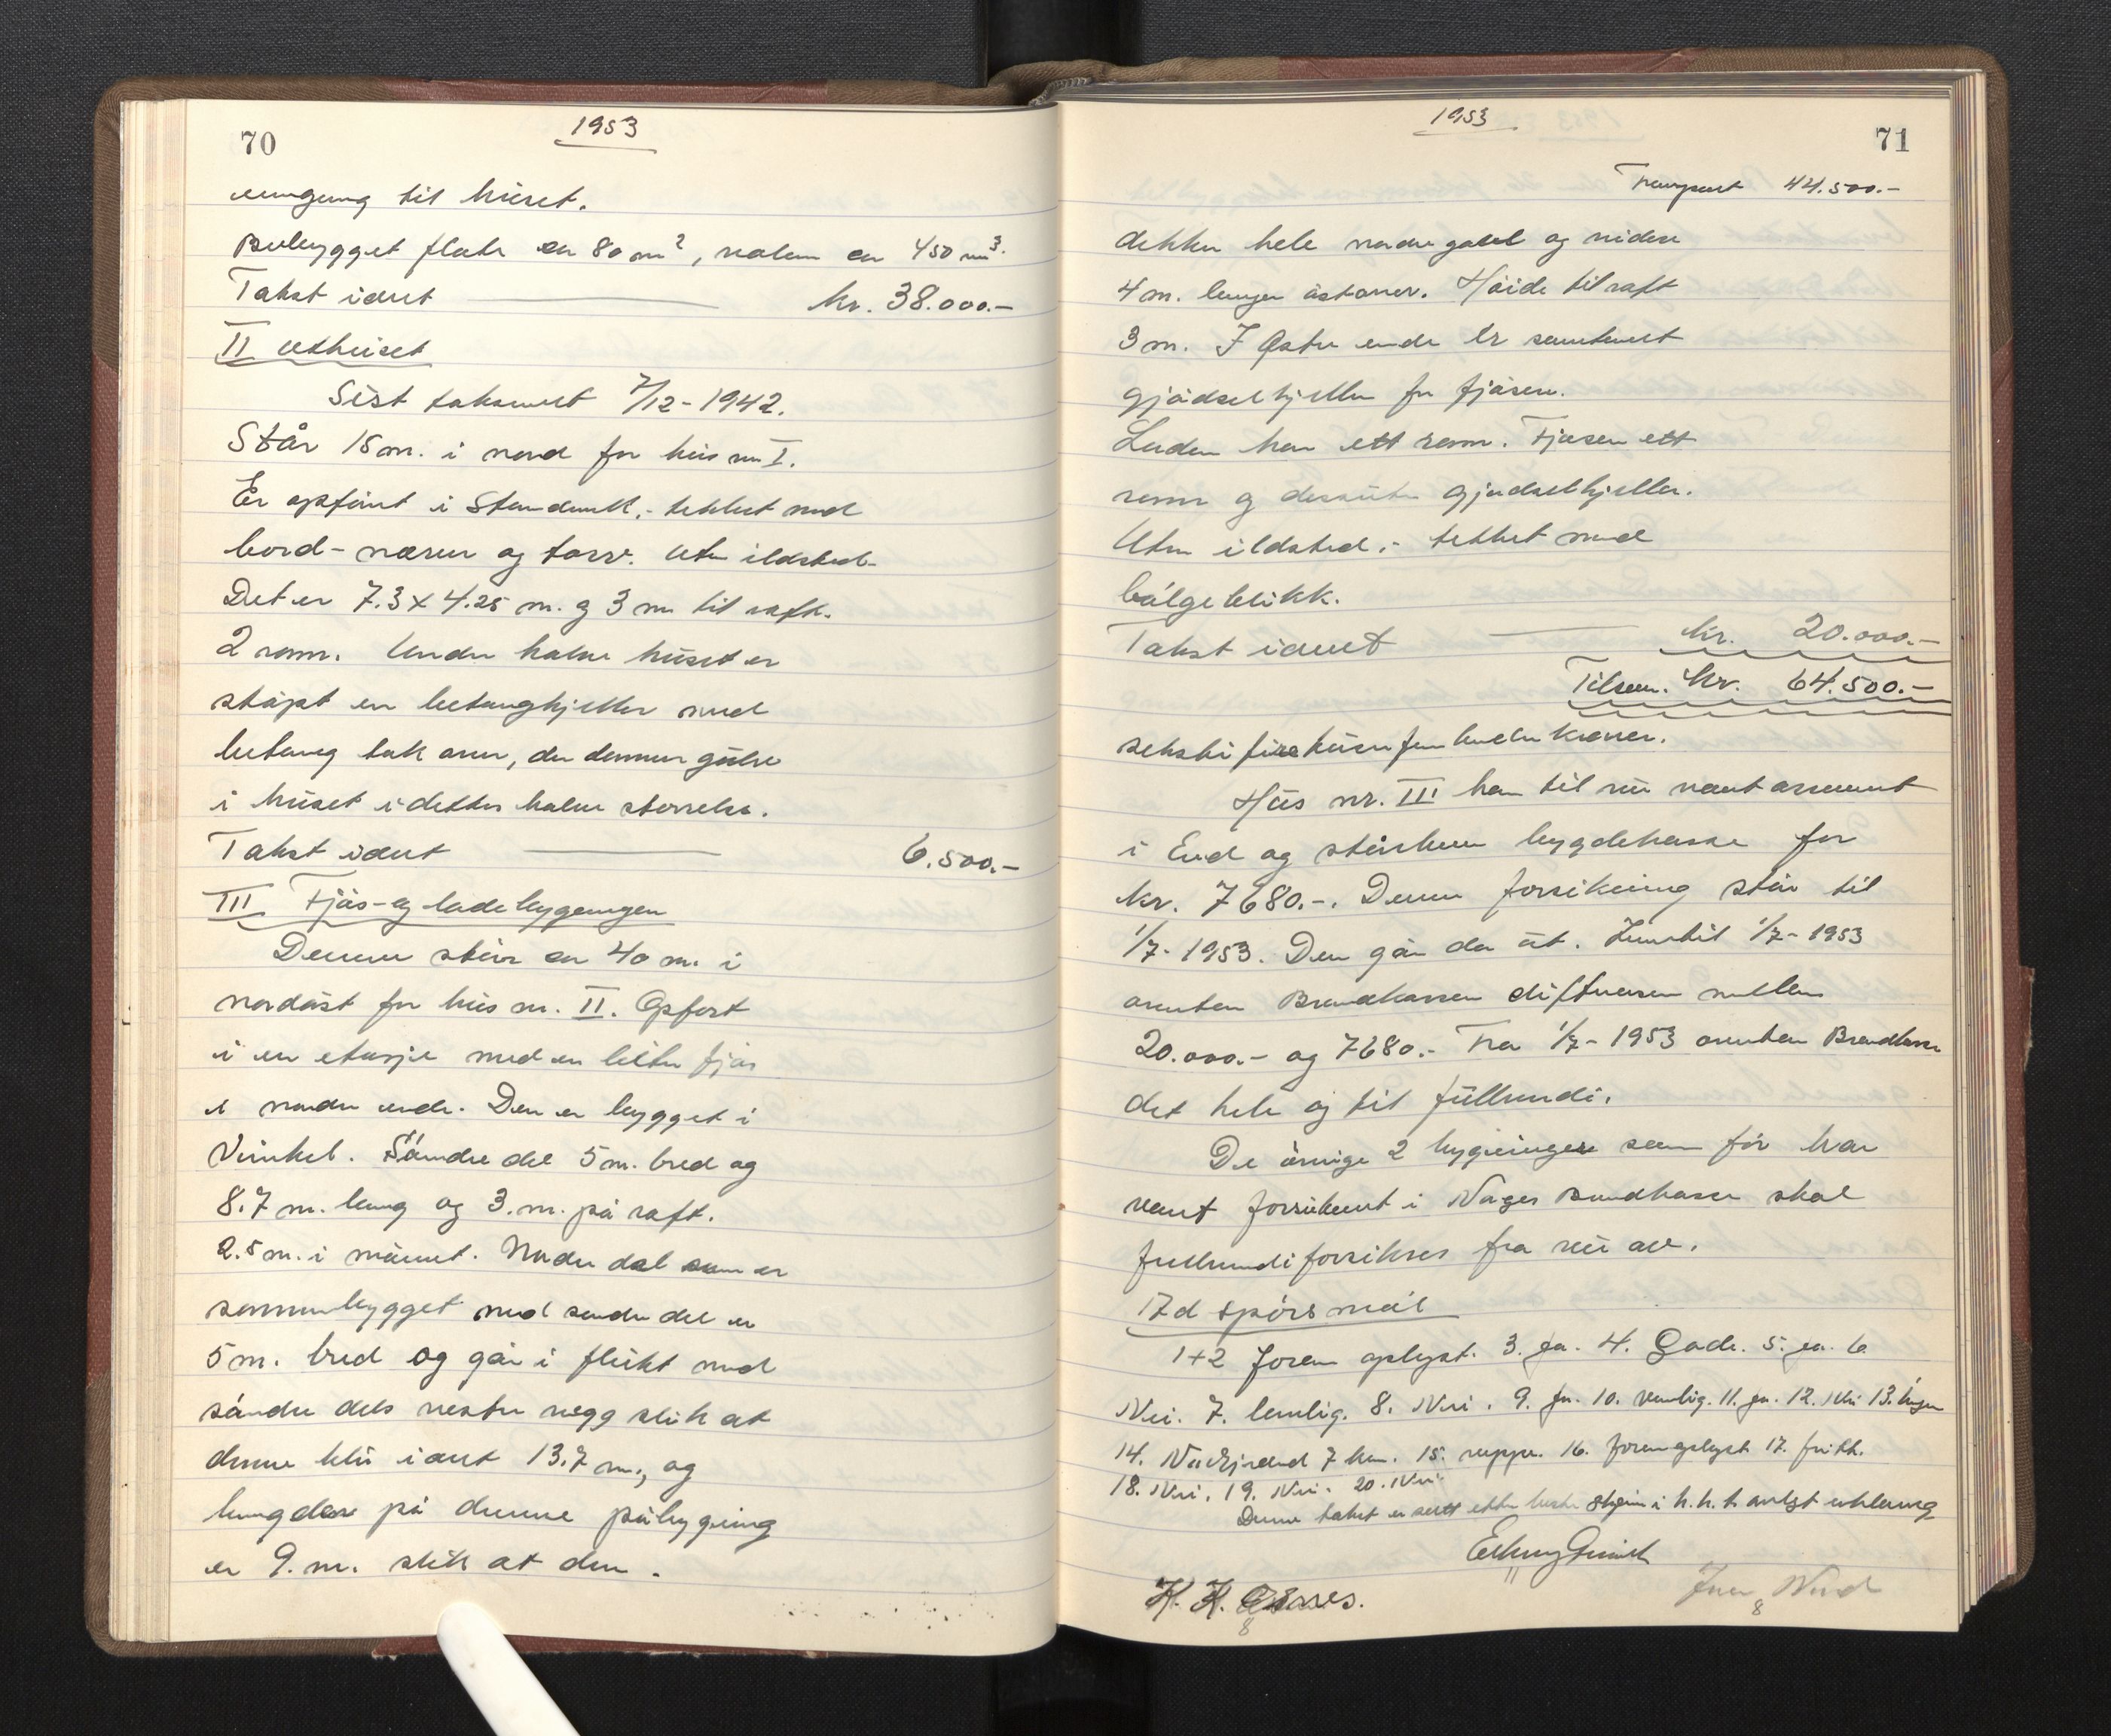 70
1953
inngang til huset.
Bebygget flate er 80 m², volum er 450 m³.
Takst idret kr. 38.000.-
II Uthuset
Sist taksert 7/12-1942.
Står 15 m. i nord for hus nr I.
Er opført i standverk, - tekket med
bord- never og torv. Uten ildsted.
Det er 7.3 x 4.25 m. og 3 m til raft.
2 rom. Under halve huset er
støpt en betongkjeller med
betong tak over, der danner gulv
i huset i dettes halve størrelse.
Takst idret 6.500.-
III Fjøs- og ladebygningen
Denne står ca 40 m. i
nordøst for hus nr. II. Opført
i en etasje med en liten fjøs
i nordre ende. Den er bygget i
Vinkel. Søndre del 5 m. bred og
8.7 m. lang og 3. m. på raft.
2.5 m. i mønet. Nordre del som er
sammenbygget med søndre del er
5 m. bred og går i flukt med
søndre dels vestre vegg slik at
denne blir i alt 13.7 m., og
lengden på denne påbygging
er 9. m. slik at den
1953
71
Transport 44.500.-
dekker hele nordre gavel og videre
4 m. lenger østover. Høide til raft
3 m. I Østre ende er sementert
gjødselkjeller for fjøsen.
Laden har ett rom. Fjøsen ett
rom og dessuten gjødselkjeller.
Uten ildsted, - tekket med
bølgeblikk.
Takst idret kr. 20.000.-
Tilsam. kr. 64.500.-
sekstifiretusenfemhundrekroner.
Hus nr. III har til nu vært assurert
i Eid og bygdekasse for
kr. 7680.-. Denne forsikring står til
1/7-1953. Den går da ut. Inntil 1/7-1953
overtar Brandkassen differansen mellem
20.000.- og 7680.- Fra 1/7-1953 overtar Brandkassen
det hele og til fullverdi.
De øvrige 2 bygninger som før har
vært forsikret i Norges Brandkasse skal
fullverdiforsikres fra nu av.
Ad spørsmål
1+2 Foran oplyst. 3. Ja. 4. Gode. 5. ja. 6.
Nei. 7. lemlig. 8. Nei. 9. Ja. 10. vanlig. 11. ja. 12. Nei 13. Ingen
14. 7 km. 15. 16. Foran oplyst 17. friskt.
18. Nei. 19. Nei. 20. Nei.
Denne takst er satt etter beste skjønn i h. h. t. avlagt erklæring